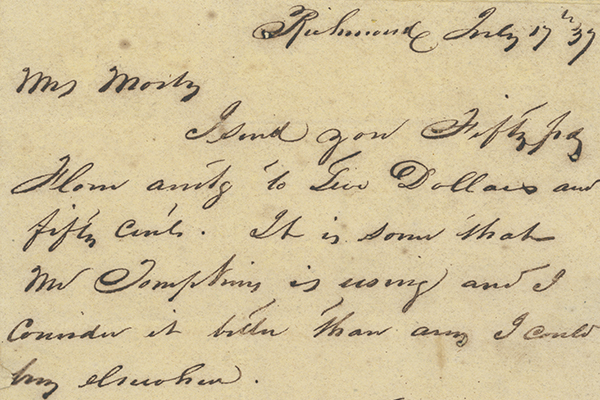 Richmond July 17th 37
Mrs Mosby
I send you Fifty
Flour amtg to Two Dollars and
fifty cents. It is some that
Mr Tompkins is using and I
Consider it better than any I could
buy elsewhere.